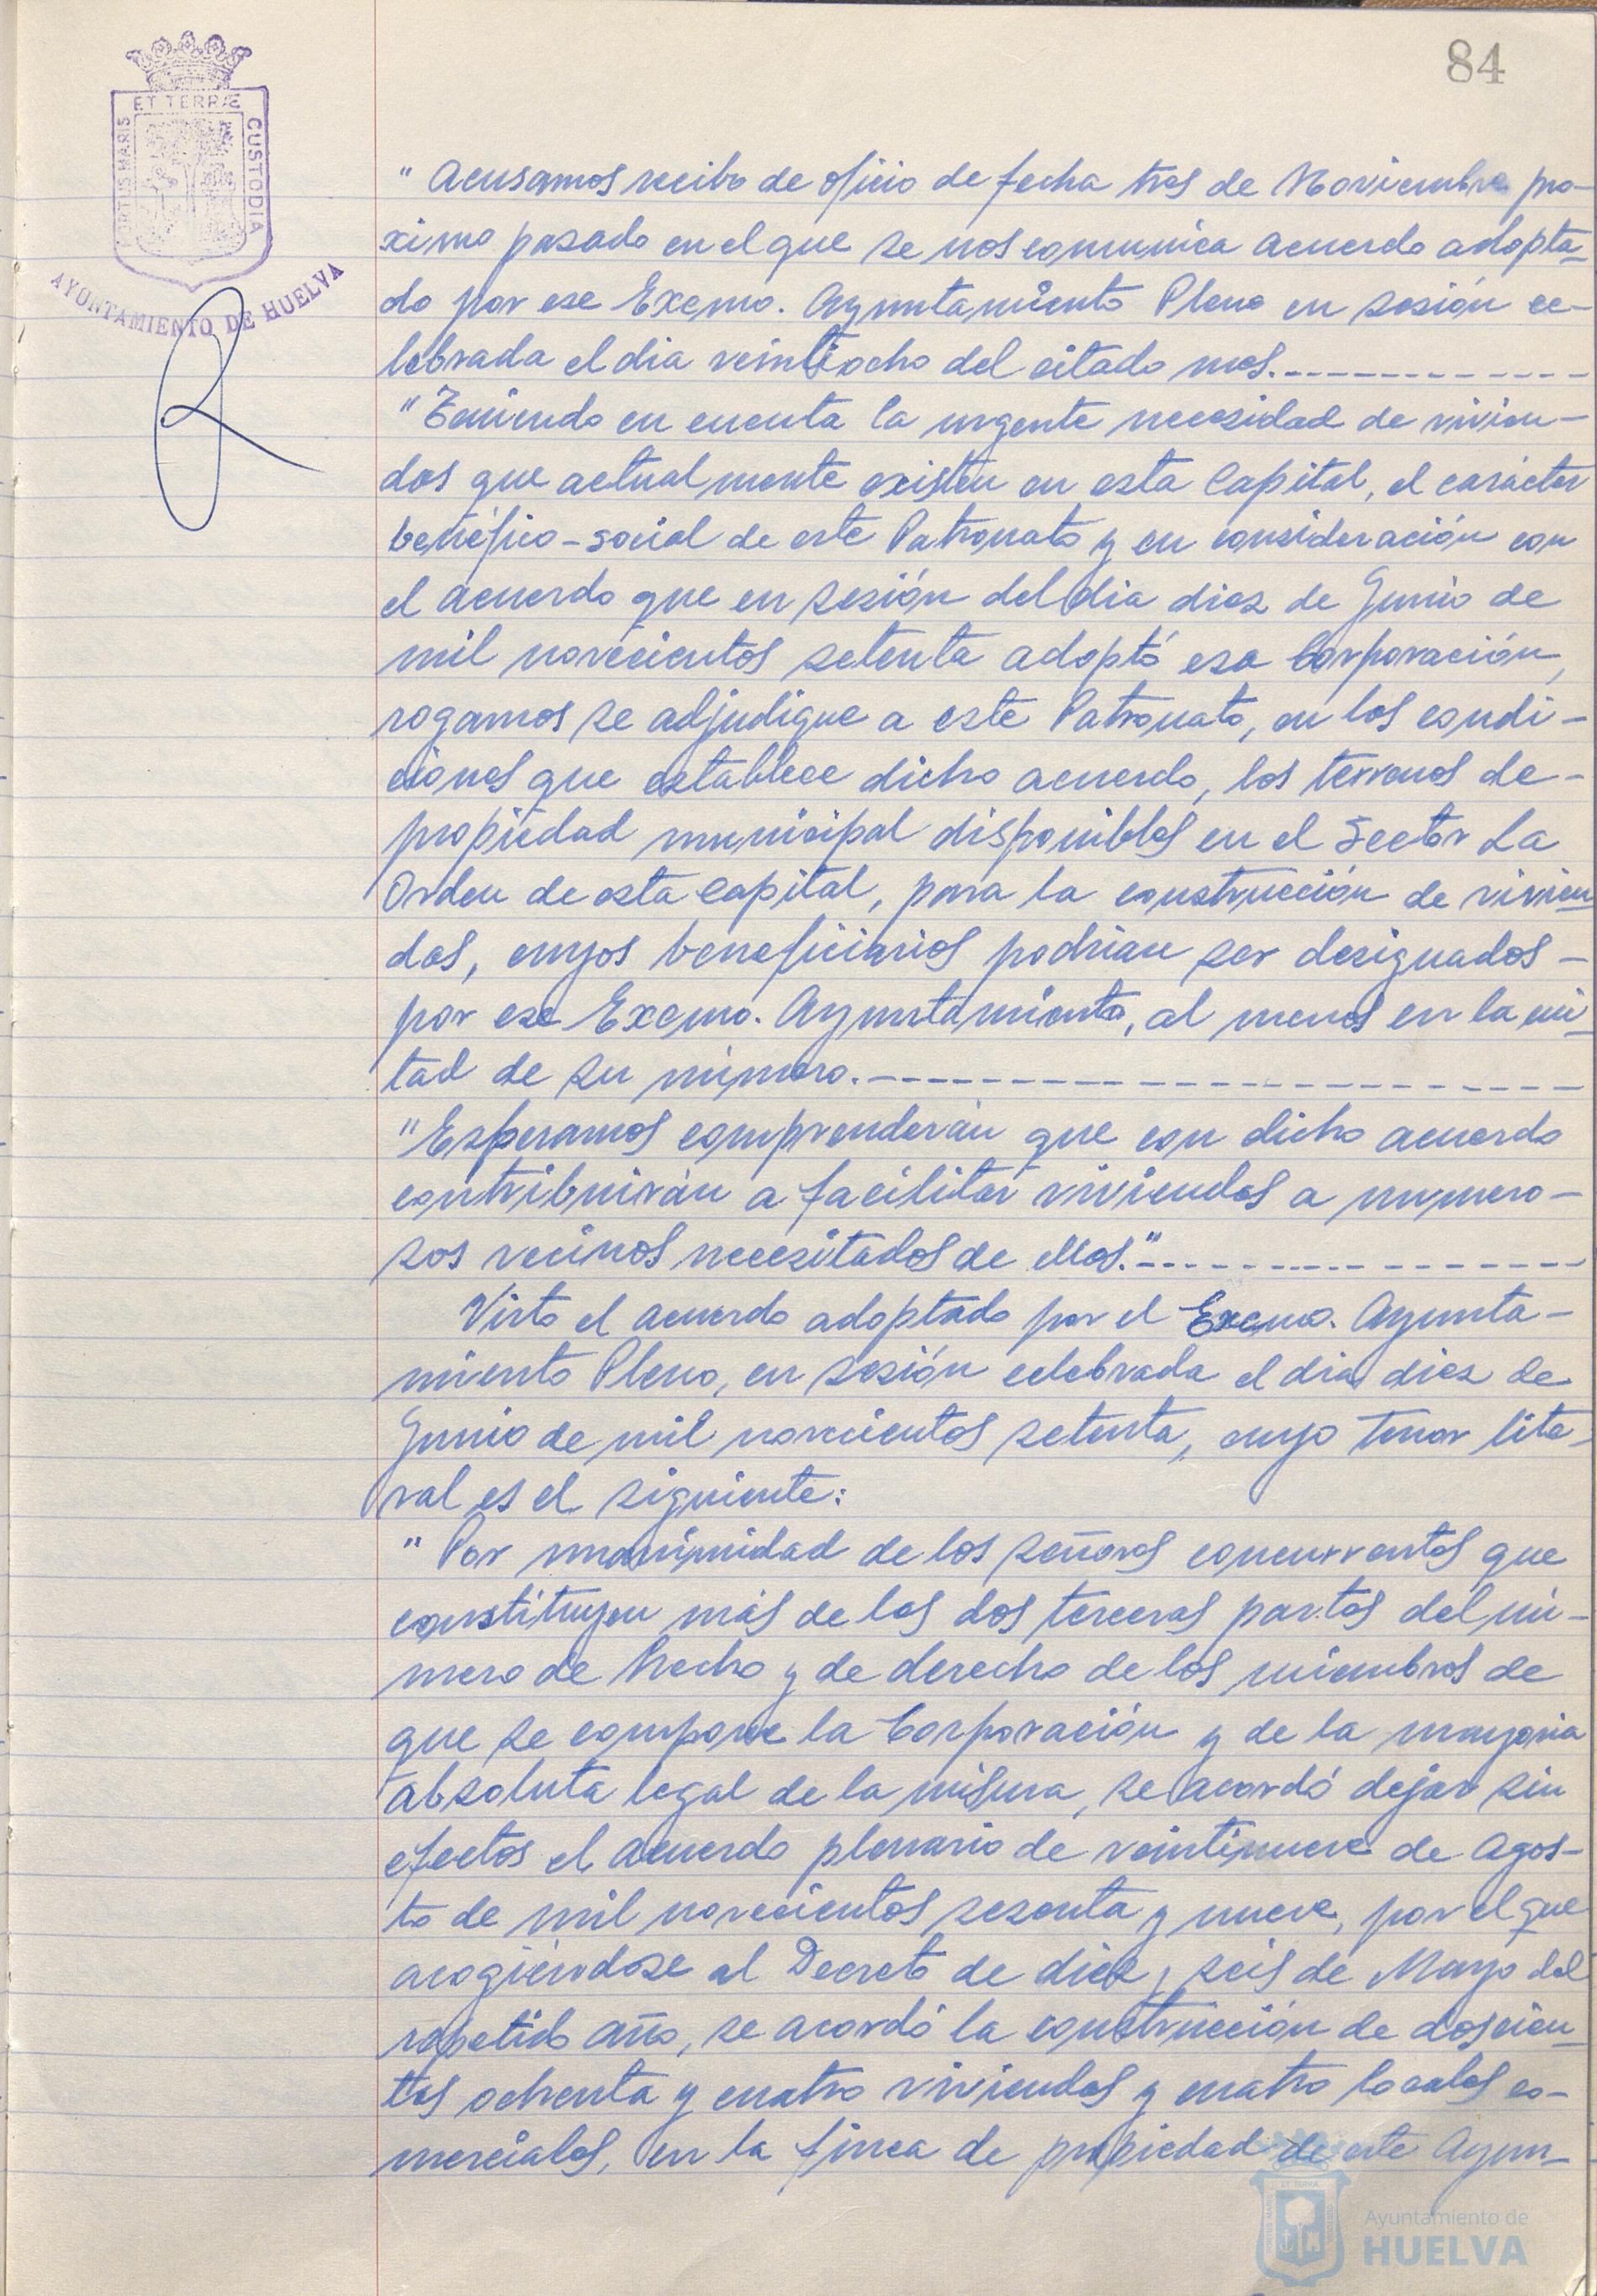 84
ET TERRÆ
PORTUS MARIS
CUSTODIA
AYUNTAMIENTO DE HUELVA
" Acusamos recibo de oficio de fecha tres de Noviembre pro-
ximo pasado en el que se nos comunica acuerdo adopta-
do por ese Excmo. Ayuntamiento Pleno en sesión ce-
lebrada el dia veintiocho del citado mes.------------
"Teniendo en cuenta la urgente necesidad de vivien-
das que actualmente existen en esta Capital, el carácter
benéfico-social de este Patronato y en consideración con
el acuerdo que en sesión del dia diez de Junio de
mil novecientos setenta adoptó esa Corporación,
rogamos se adjudique a este Patronato, en las condi-
ciones que establece dicho acuerdo, los terrenos de-
propiedad municipal disponibles en el Sector La
Orden de esta Capital, para la construcción de vivien-
das, cuyos beneficiarios podrian ser designados -
por ese Excmo. Ayuntamiento, al menos en la mi-
tad de su número.------------------------
"Esperamos comprenderán que con dicho acuerdo
contribuirán a facilitar viviendas a numero-
sos vecinos necesitados de ellas."-----------------
Visto el acuerdo adoptado por el Excmo. Ayunta-
miento Pleno, en sesión celebrada el dia diez de
Junio de mil novecientos setenta, cuyo tenor lite-
ral es el siguiente:
"Por unanimidad de los señores concurrentes que
constituyen más de las dos terceras partes del nú-
mero de hecho y de derecho de los miembros de
que se compone la Corporación y de la mayoria
absoluta legal de la misma, se acordó dejar sin
efectos el acuerdo plenario de veintinueve de Agos-
to de mil novecientos sesenta y nueve, por el que
acogiéndose al Decreto de diez y seis de Mayo del
repetido año, se acordó la construcción de doscien-
tas ochenta y cuatro viviendas y cuatro locales co-
merciales, en la finca de propiedad de este Ayun-
Ayuntamiento de
HUELVA